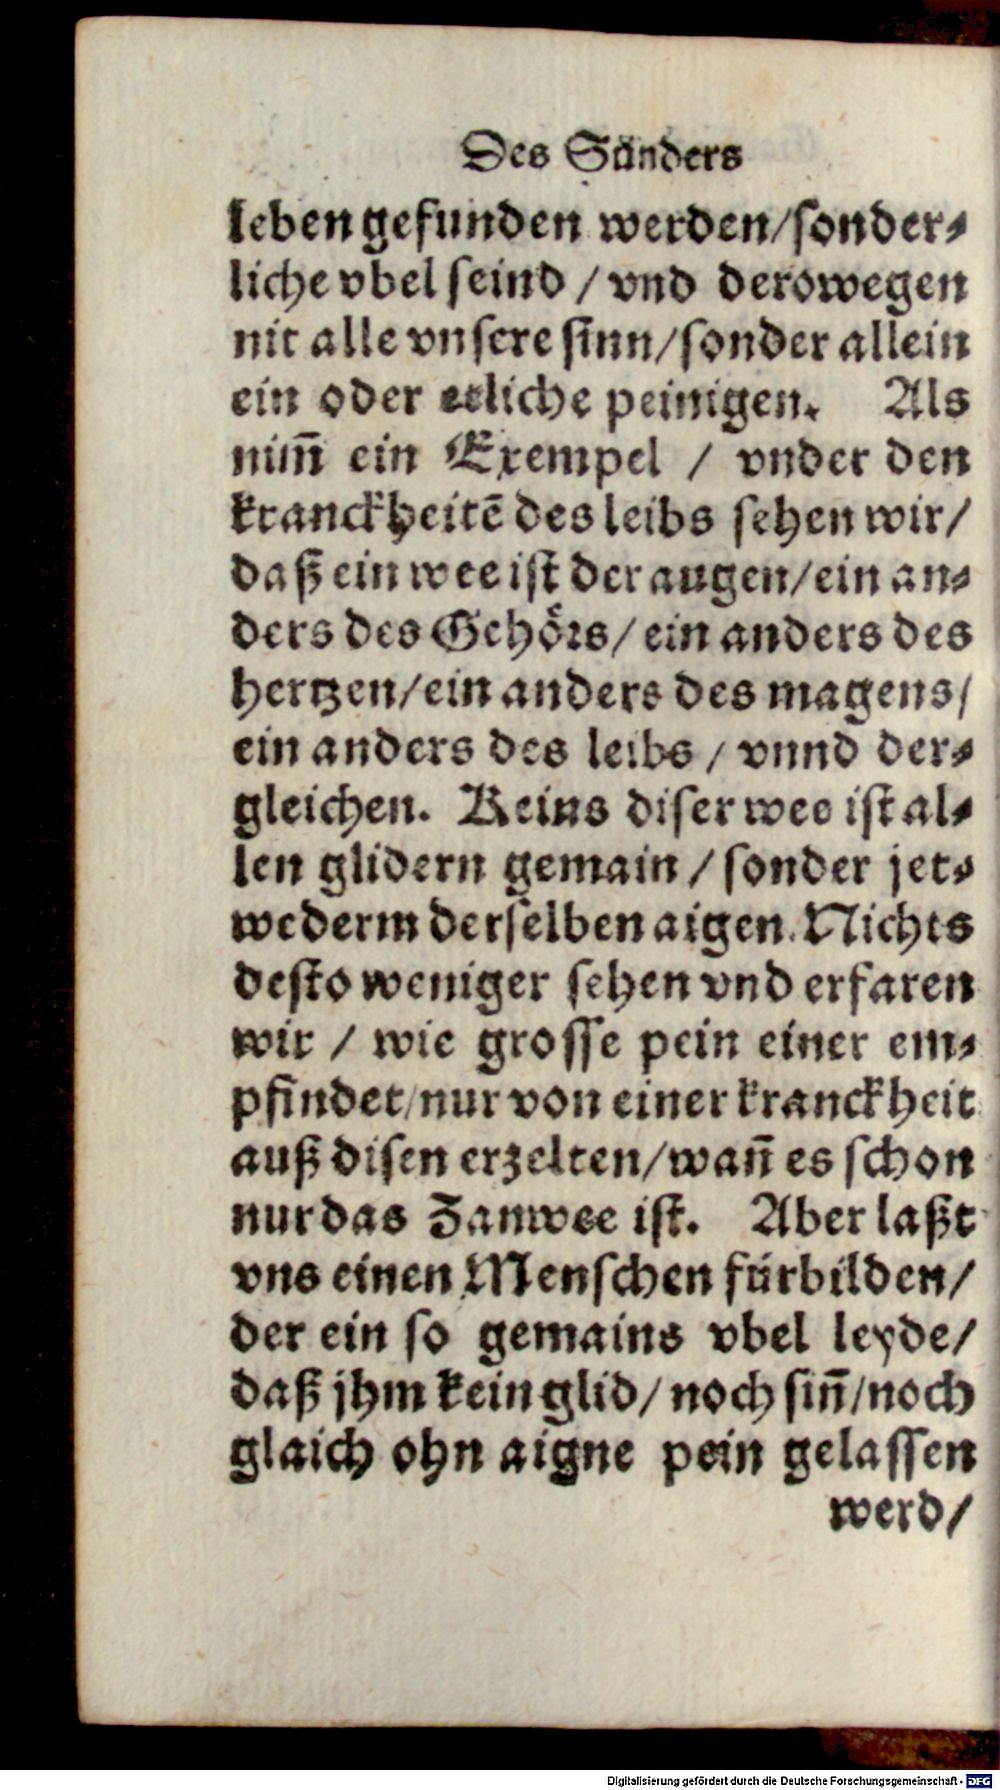 Des Sünders
leben gefunden werden/sonder⸗
liche vbel seind / vnd derowegen
nit alle vnsere sinn/sonder allein
ein oder etliche peinigen. Als
nim̃ ein Exempel / vnder den
kranckheitẽ des leibs sehen wir/
daß ein wee ist der augen/ein an⸗
ders des Gehörs/ ein anders des
hertzen/ein anders des magens/
ein anders des leibs / vnnd der⸗
gleichen. Keins diser wee ist al⸗
len glidern gemain / sonder jet⸗
wederm derselben aigen. Nichts
desto weniger sehen vnd erfaren
wir / wie grosse pein einer em⸗
pfindet/nur von einer kranckheit
auß disen erzelten/wañ es schon
nur das Zanwee ist. Aber laßt
vns einen Menschen fürbilden/
der ein so gemains vbel leyde/
daß jhm kein glid/ noch siñ/noch
glaich ohn aigne pein gelassen
werd/
Digitalisierung gefördert durch die Deutsche Forschungsgemeinschaft - DFG